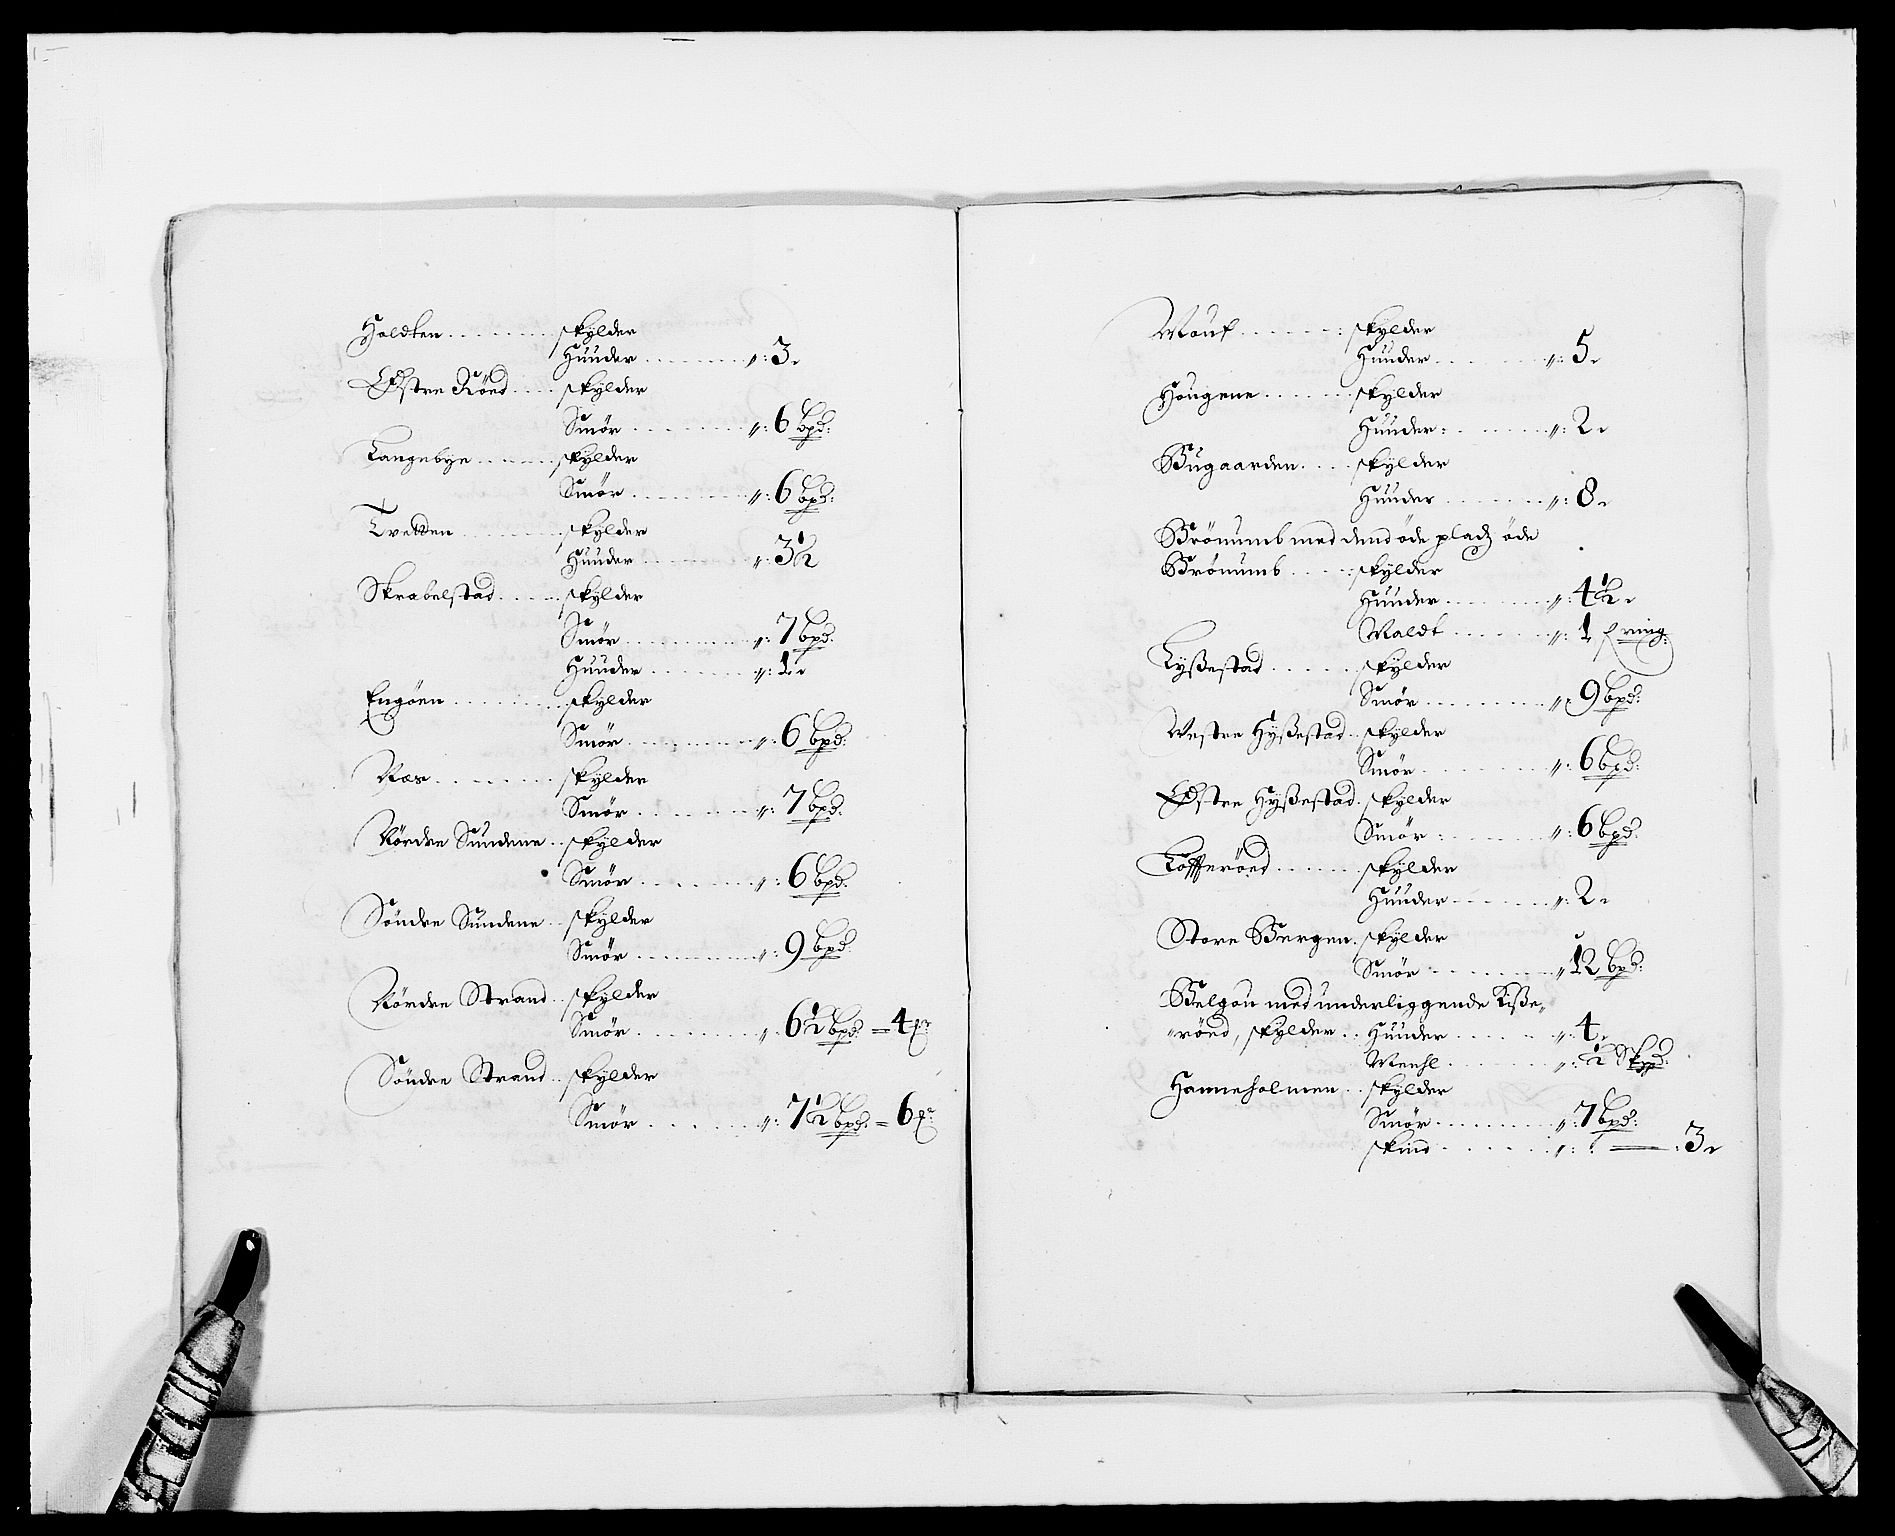 Holdten ........ skylder
Huuder ........ „: 3.
Østre Röed .... skylder
Smör ........ „: 6 bpd:
Langebye ...... skylder
Smör ........ „: 6 bpd:
Tvetten ........ skylder
Huuder ........ „: 3½
Skrabelstad ..... skylder
Smör ........ „: 7 bpd:
Huuder ........ „: 1.
Engöen ........ skylder
Smör ........ „: 6 bpd:
Næs ........ skylder
Smör ........ „: 7 bpd:
Nördre Sundene .. skylder
Smör ........ „: 6 bpd:
Söndre Sundene .. skylder
Smör ........ „: 9 bpd:
Nördre Strand .. skylder
Smör ........ „: 6½ bpd: = 4
Söndre Strand .. skylder
Smör ........ „: 7½ bpd: = 6
skylder
Huuder ........ „: 5.
Hougene ...... skylder
Huuder: ...... „: 2.
Bugaarden .... skylder
Huuder ....... „: 8.
Brönumb med dend öde pladz öde
Brönumb .... skylder
Huuder ....... „: 4½.
Maldt ....... „: 1
skylder
Smör ........ „: 9 bpd:
Westre Hyßestad .. skylder
Smör ........ „: 6 bpd:
Østre Hyßestad . skylder
Smör : ...... „: 6 bpd:
Tofferöed ...... skylder
Huuder ....... „: 2.
Store Bergen . skylder
Smör ........ „ 12 bpd:
Belgou med underliggende Kiße„
„röed, skylder .. Huuder ...... „: 4.
Meehl ....... „: ½ Skpd:
Hanneholmen .. skylder
Smör ........ „: 7 bpd:
skind ...... „: : — : 3.